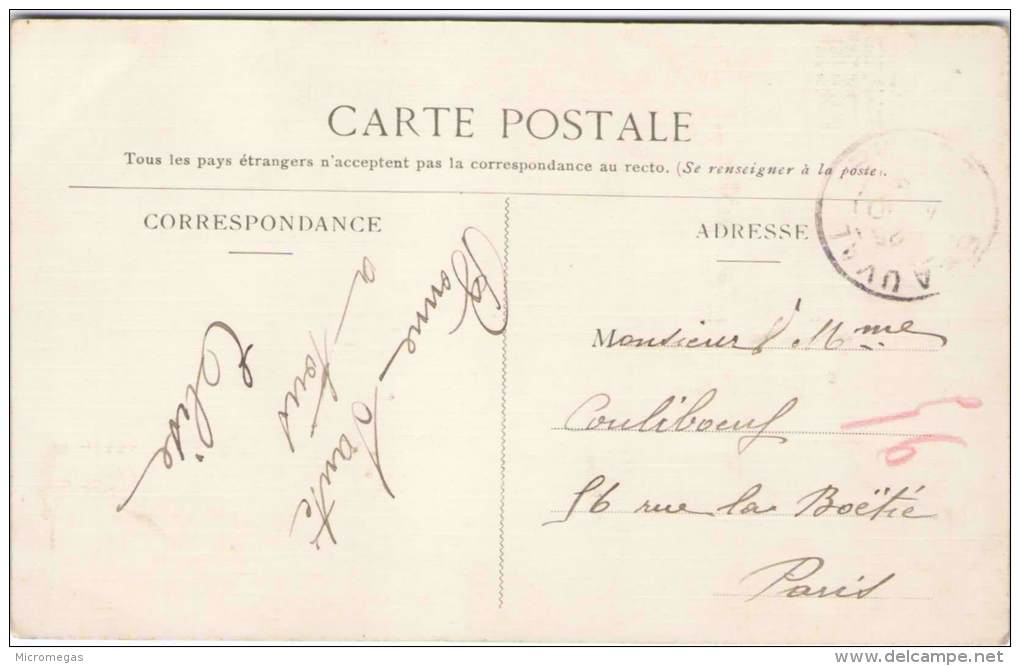 CARTE POSTALE
Tous les pays étrangers n'acceptent pas la correspondance au recto. (Se renseigner à la poste).
CORRESPONDANCE
ADRESSE
Bonne Santé
a tous
Élise
Monsieur & Mme
Couliboeuf
56 rue la Boëtie
Paris
Micromegas
www.delcampe.net